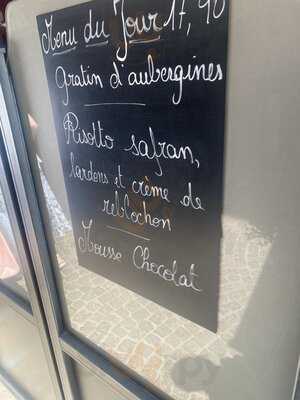 Menu du Jour 17,90
Gratin d'aubergines
Risotto safran,
lardons et crème de
reblochon
Mousse Chocolat